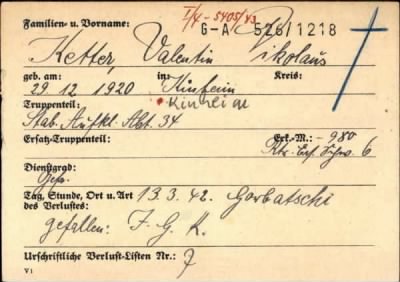 I/4 - 5405/43
Familien- u. Vorname: G-A 526/1218
Ketter, Valentin Nikolaus
geb. am: in: Kreis:
29. 12. 1920 Kinheim
Truppenteil:
Stab. Aufkl. Abt. 34
Ersatz-Truppenteil: Erk.-M.: - 980
Rtr. Ers. Schw. 6
Dienstgrad:
Gefr.
Tag, Stunde, Ort u. Art 13.3.42. Gorbatschi
des Verlustes:
gefallen: I. G. K.
Urschriftliche Verlust-Listen Nr.: 7
V 1